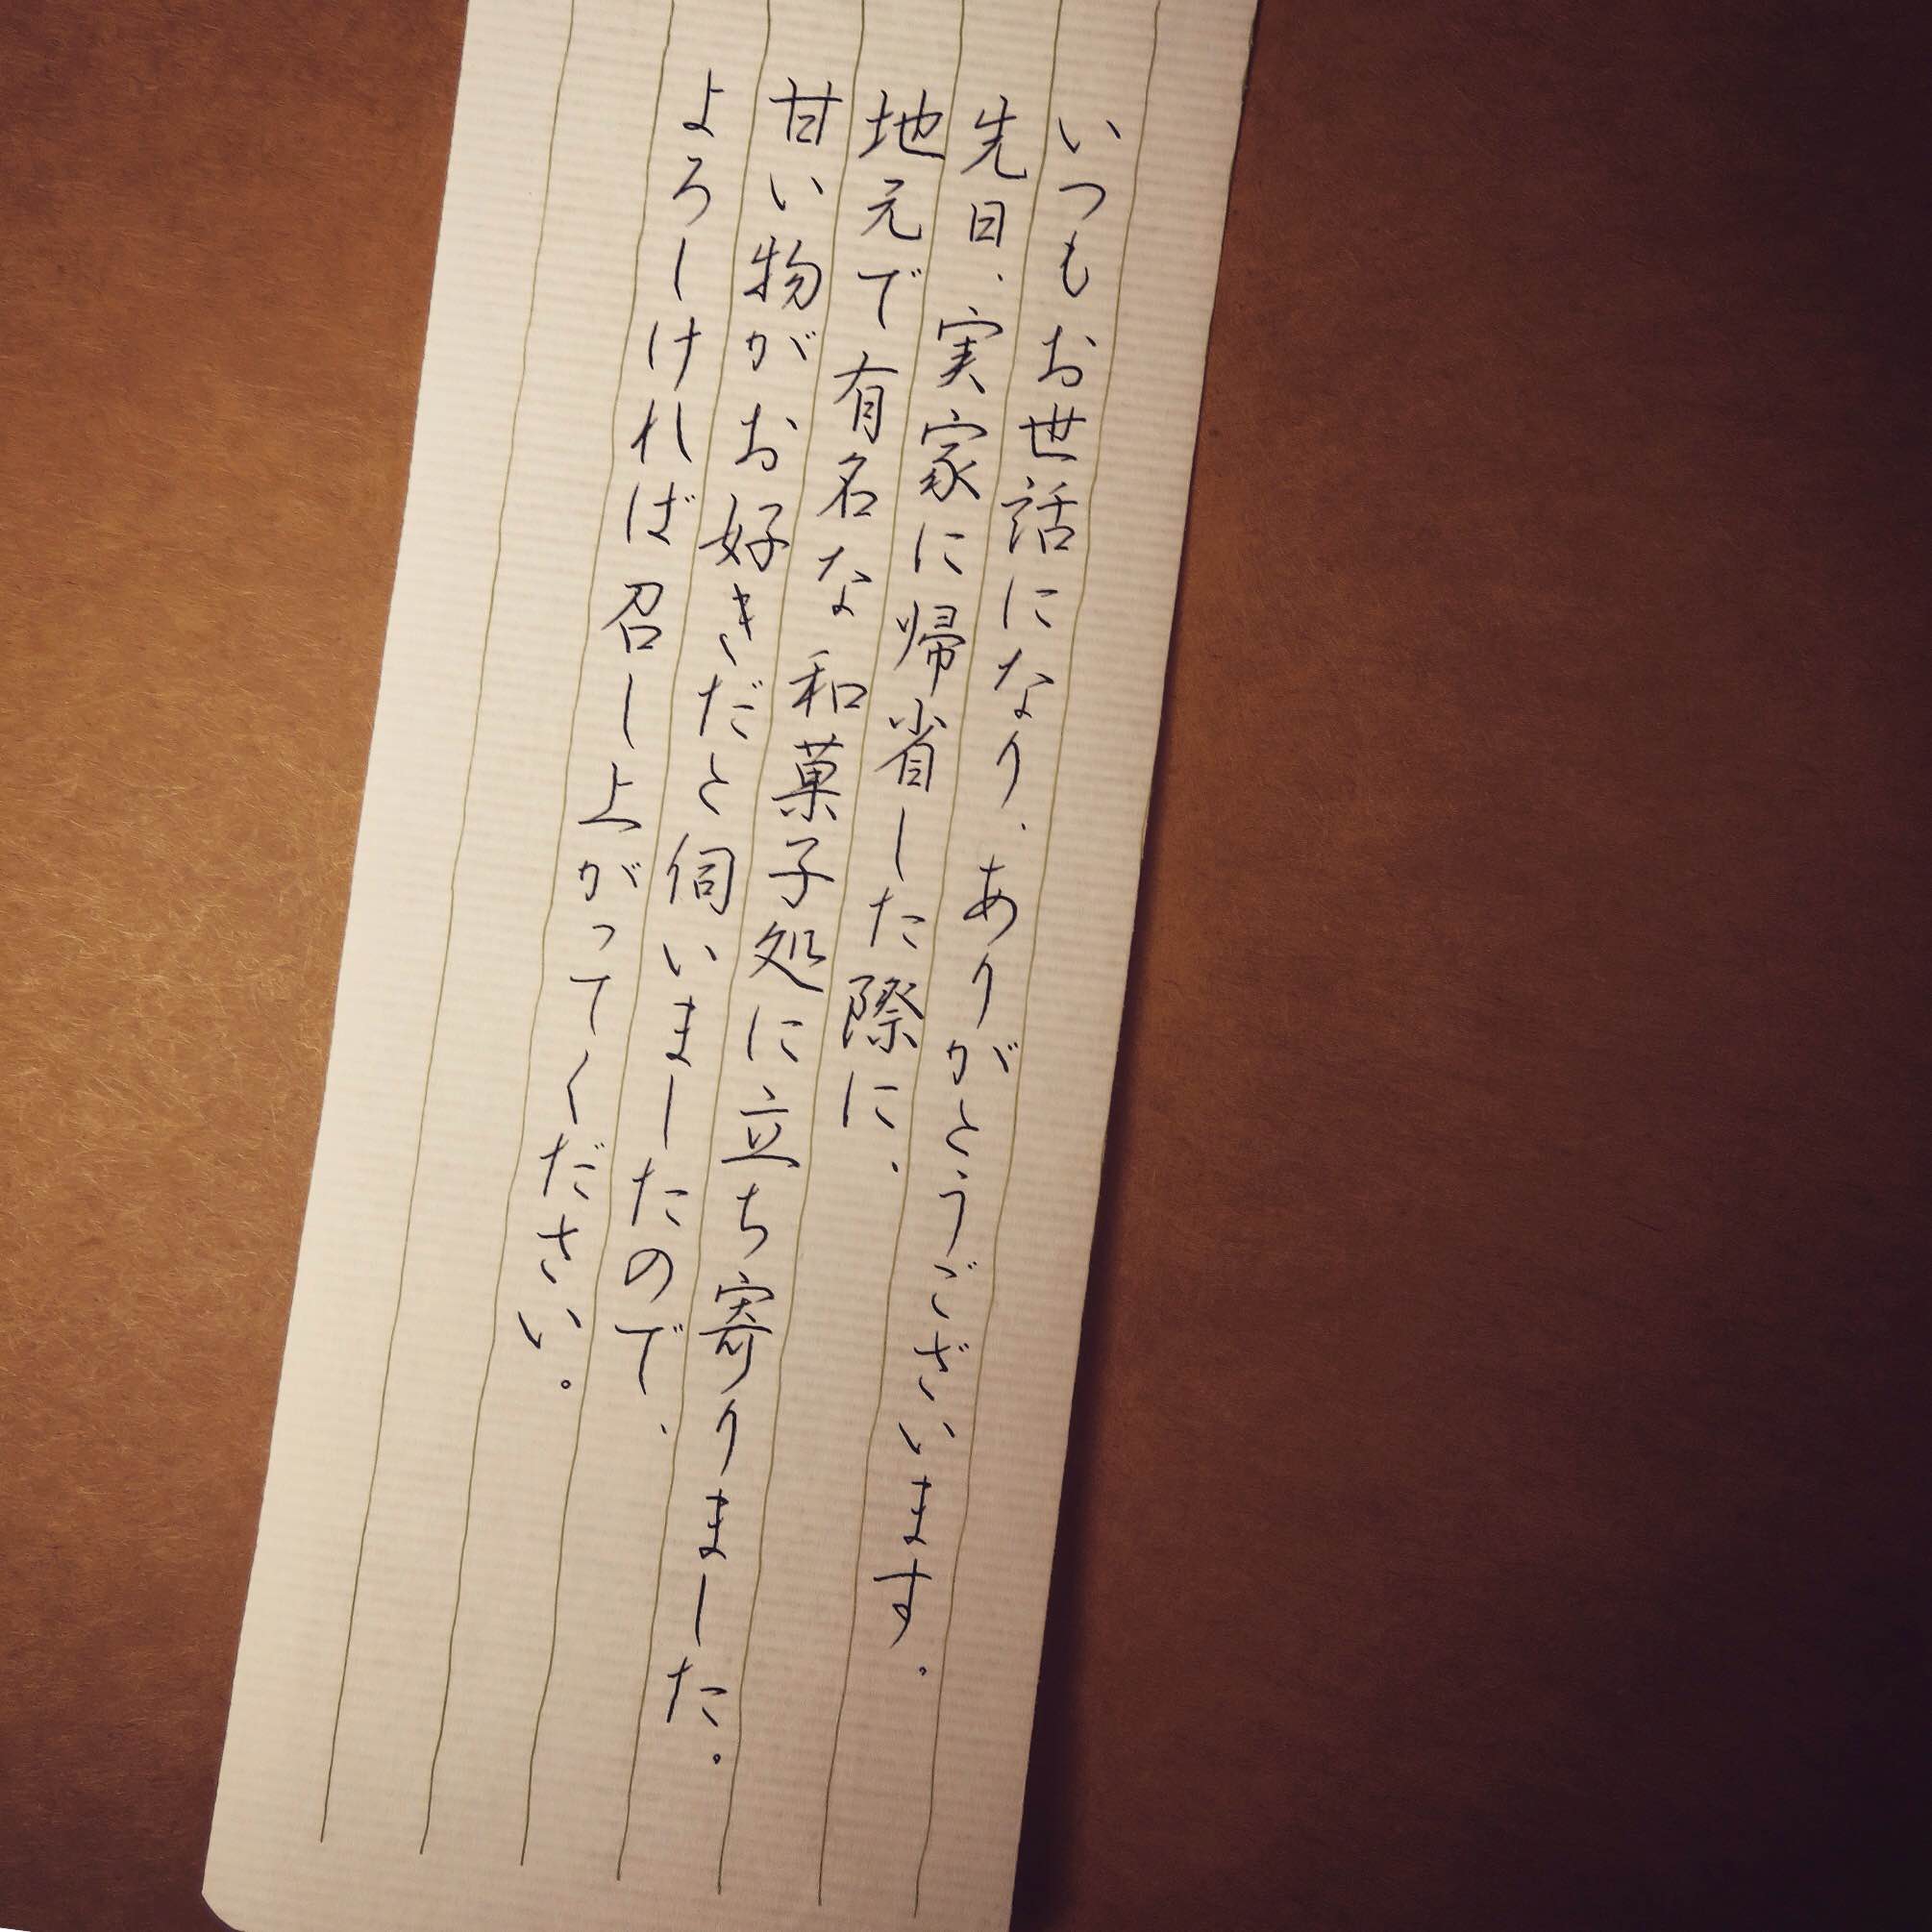 いつもお世話になり、ありがとうございます。
先日、実家に帰省した際に、
地元で有名な和菓子処に立ち寄りました。
甘い物がお好きだと伺いましたので、
よろしければ召し上がってください。